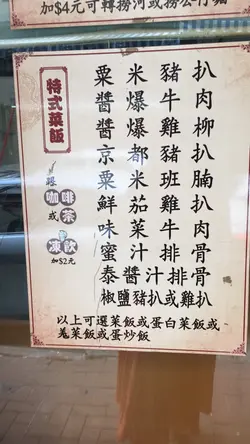 加$4元可轉撈河或撈公仔麵
特式菜飯
跟
咖啡
或茶
凍飲
加$2元
粟米豬扒
醬爆牛肉
醬爆雞柳
京都豬扒
粟米班腩
鮮茄雞扒
味菜牛肉
蜜汁排骨
泰醬汁排骨
椒鹽豬扒或雞扒
以上可選菜飯或蛋白菜飯或
羗菜飯或蛋炒飯